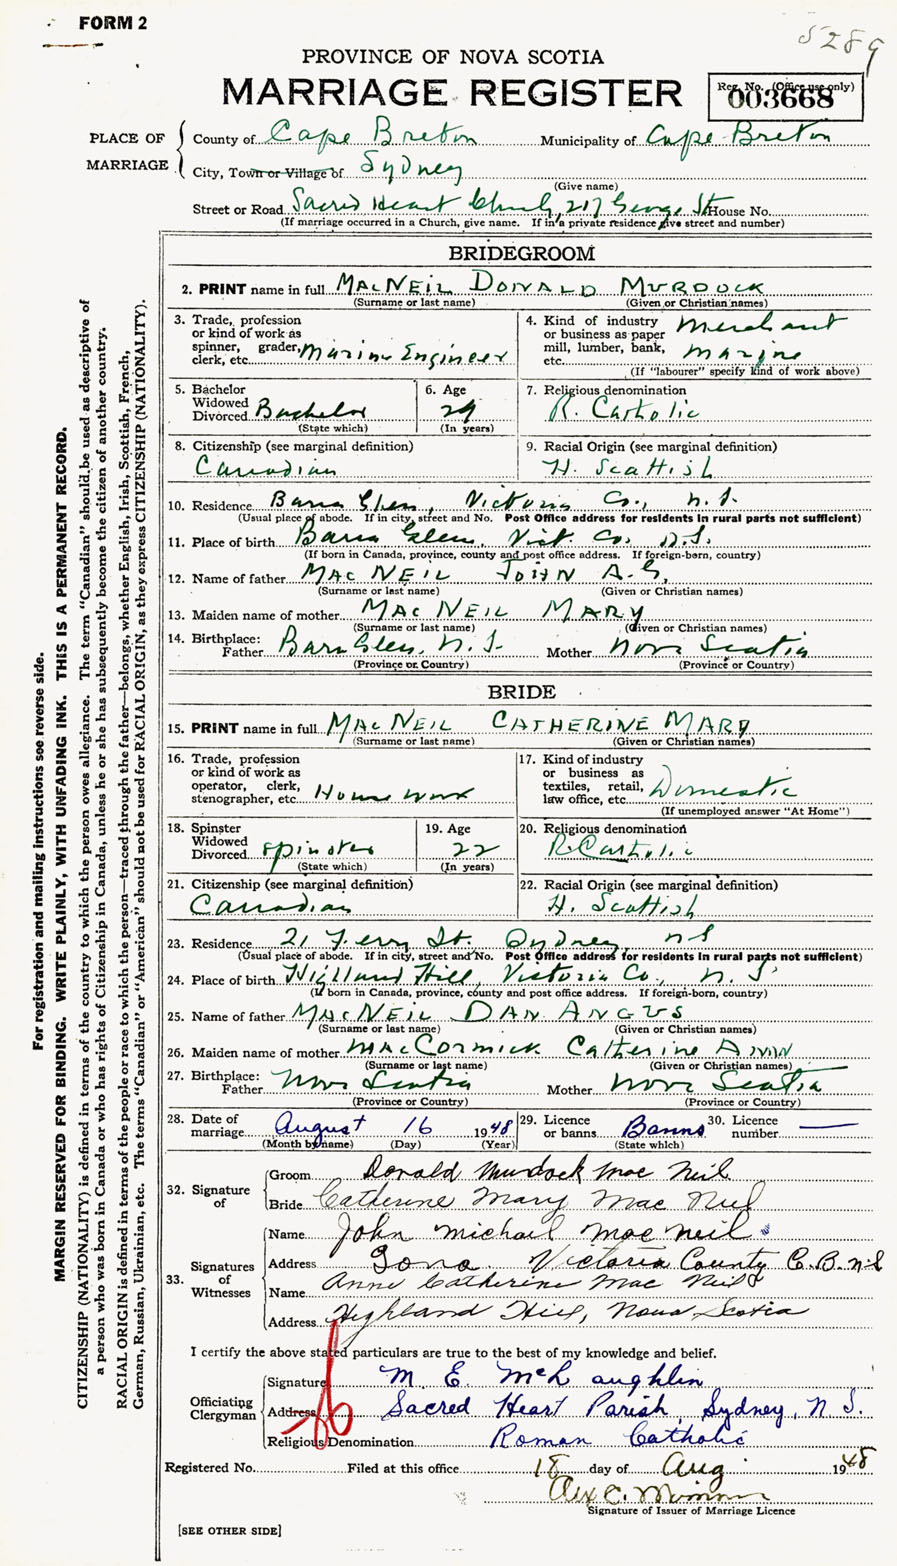 FORM 2
5289
PROVINCE OF NOVA SCOTIA
MARRIAGE REGISTER
Reg. No. (Office use only)
003668
PLACE OF MARRIAGE
County of Cape Breton Municipality of Cape Breton
City, Town or Village of Sydney
(Give name)
Street or Road Sacred Heart Church, 217 George St House No.
(If marriage occurred in a Church, give name. If in a private residence give street and number)
BRIDEGROOM
2. PRINT name in full MACNEIL DONALD MURDOCK
(Surname or last name) (Given or Christian names)
3. Trade, profession or kind of work as spinner, grader, clerk, etc. Marine Engineer
4. Kind of industry or business as paper mill, lumber, bank, etc. Merchant Marine
(If "labourer" specify kind of work above)
5. Bachelor Widowed Divorced Bachelor
(State which)
6. Age 29
(In years)
7. Religious denomination R. Catholic
8. Citizenship (see marginal definition) Canadian
9. Racial Origin (see marginal definition) H. Scattish
10. Residence Barra Glen, Victoria Co., N.S.
(Usual place of abode. If in city, street and No. Post Office address for residents in rural parts not sufficient)
11. Place of birth Barra Glen, Vict. Co. N.S.
(If born in Canada, province, county and post office address. If foreign-born, country)
12. Name of father MAC NEIL JOHN A.G.
(Surname or last name) (Given or Christian names)
13. Maiden name of mother MAC NEIL MARY
(Surname or last name) (Given or Christian names)
14. Birthplace: Father Barra Glen, N.S. Mother Nova Scotia
(Province or Country) (Province or Country)
BRIDE
15. PRINT name in full MACNEIL CATHERINE MARY
(Surname or last name) (Given or Christian names)
16. Trade, profession or kind of work as operator, clerk, stenographer, etc. House work
17. Kind of industry or business as textiles, retail, law office, etc. Domestic
(If unemployed answer "At Home")
18. Spinster Widowed Divorced Spinster
(State which)
19. Age 22
(In years)
20. Religious denomination R. Catholic
21. Citizenship (see marginal definition) Canadian
22. Racial Origin (see marginal definition) H. Scottish
23. Residence 21 Ferry St. Sydney, NS
(Usual place of abode. If in city, street and No. Post Office address for residents in rural parts not sufficient)
24. Place of birth Highland Hill, Victoria Co., N.S.
(If born in Canada, province, county and post office address. If foreign-born, country)
25. Name of father MACNEIL DAN ANGUS
(Surname or last name) (Given or Christian names)
26. Maiden name of mother MACCORMICK Catherine ANN
(Surname or last name) (Given or Christian names)
27. Birthplace: Father Nova Scotia Mother Nova Scotia
(Province or Country) (Province or Country)
28. Date of marriage August 16 1948
(Month by name) (Day) (Year)
29. Licence or banns Banns
(State which)
30. Licence number
32. Signature of
Groom Donald Murdock Mac Neil
Bride Catherine Mary Mac Neil
33. Signatures of Witnesses
Name John Michael Mac Neil
Address Iona Victoria County C.B. N.S
Name Anne Catherine Mac Neil
Address Highland Hill, Nova Scotia
I certify the above stated particulars are true to the best of my knowledge and belief.
Officiating Clergyman
Signature M. E. McLaughlin
Address Sacred Heart Parish, Sydney, N.S.
Religious Denomination Roman Catholic
Registered No. Filed at this office 18 day of Aug 1948
Alex C.
Signature of Issuer of Marriage Licence
[SEE OTHER SIDE]
For registration and mailing instructions see reverse side.
MARGIN RESERVED FOR BINDING. WRITE PLAINLY, WITH UNFADING INK. THIS IS A PERMANENT RECORD.
CITIZENSHIP (NATIONALITY) is defined in terms of the country to which the person owes allegiance. The term "Canadian" should be used as descriptive of
a person who was born in Canada or who has rights of Citizenship in Canada, unless he or she has subsequently become the citizen of another country.
RACIAL ORIGIN is defined in terms of the people or race to which the person—traced through the father—belongs, whether English, Irish, Scottish, French,
German, Russian, Ukrainian, etc. The terms "Canadian" or "American" should not be used for RACIAL ORIGIN, as they express CITIZENSHIP (NATIONALITY).